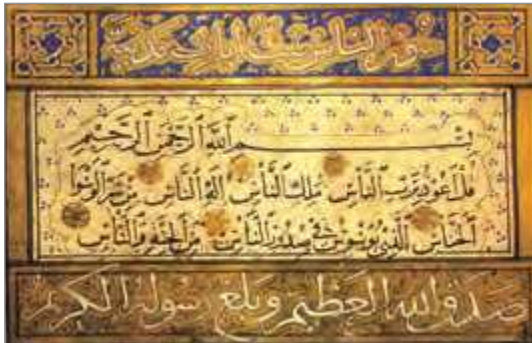 سورة الناس ست آيات مكية
بسم الله الرحمن الرحيم
قل أعوذ برب الناس ملك الناس إله الناس من شر الوسواس
الخناس الذي يوسوس في صدور الناس من الجنة والناس
صدق الله العظيم وبلغ رسوله الكريم